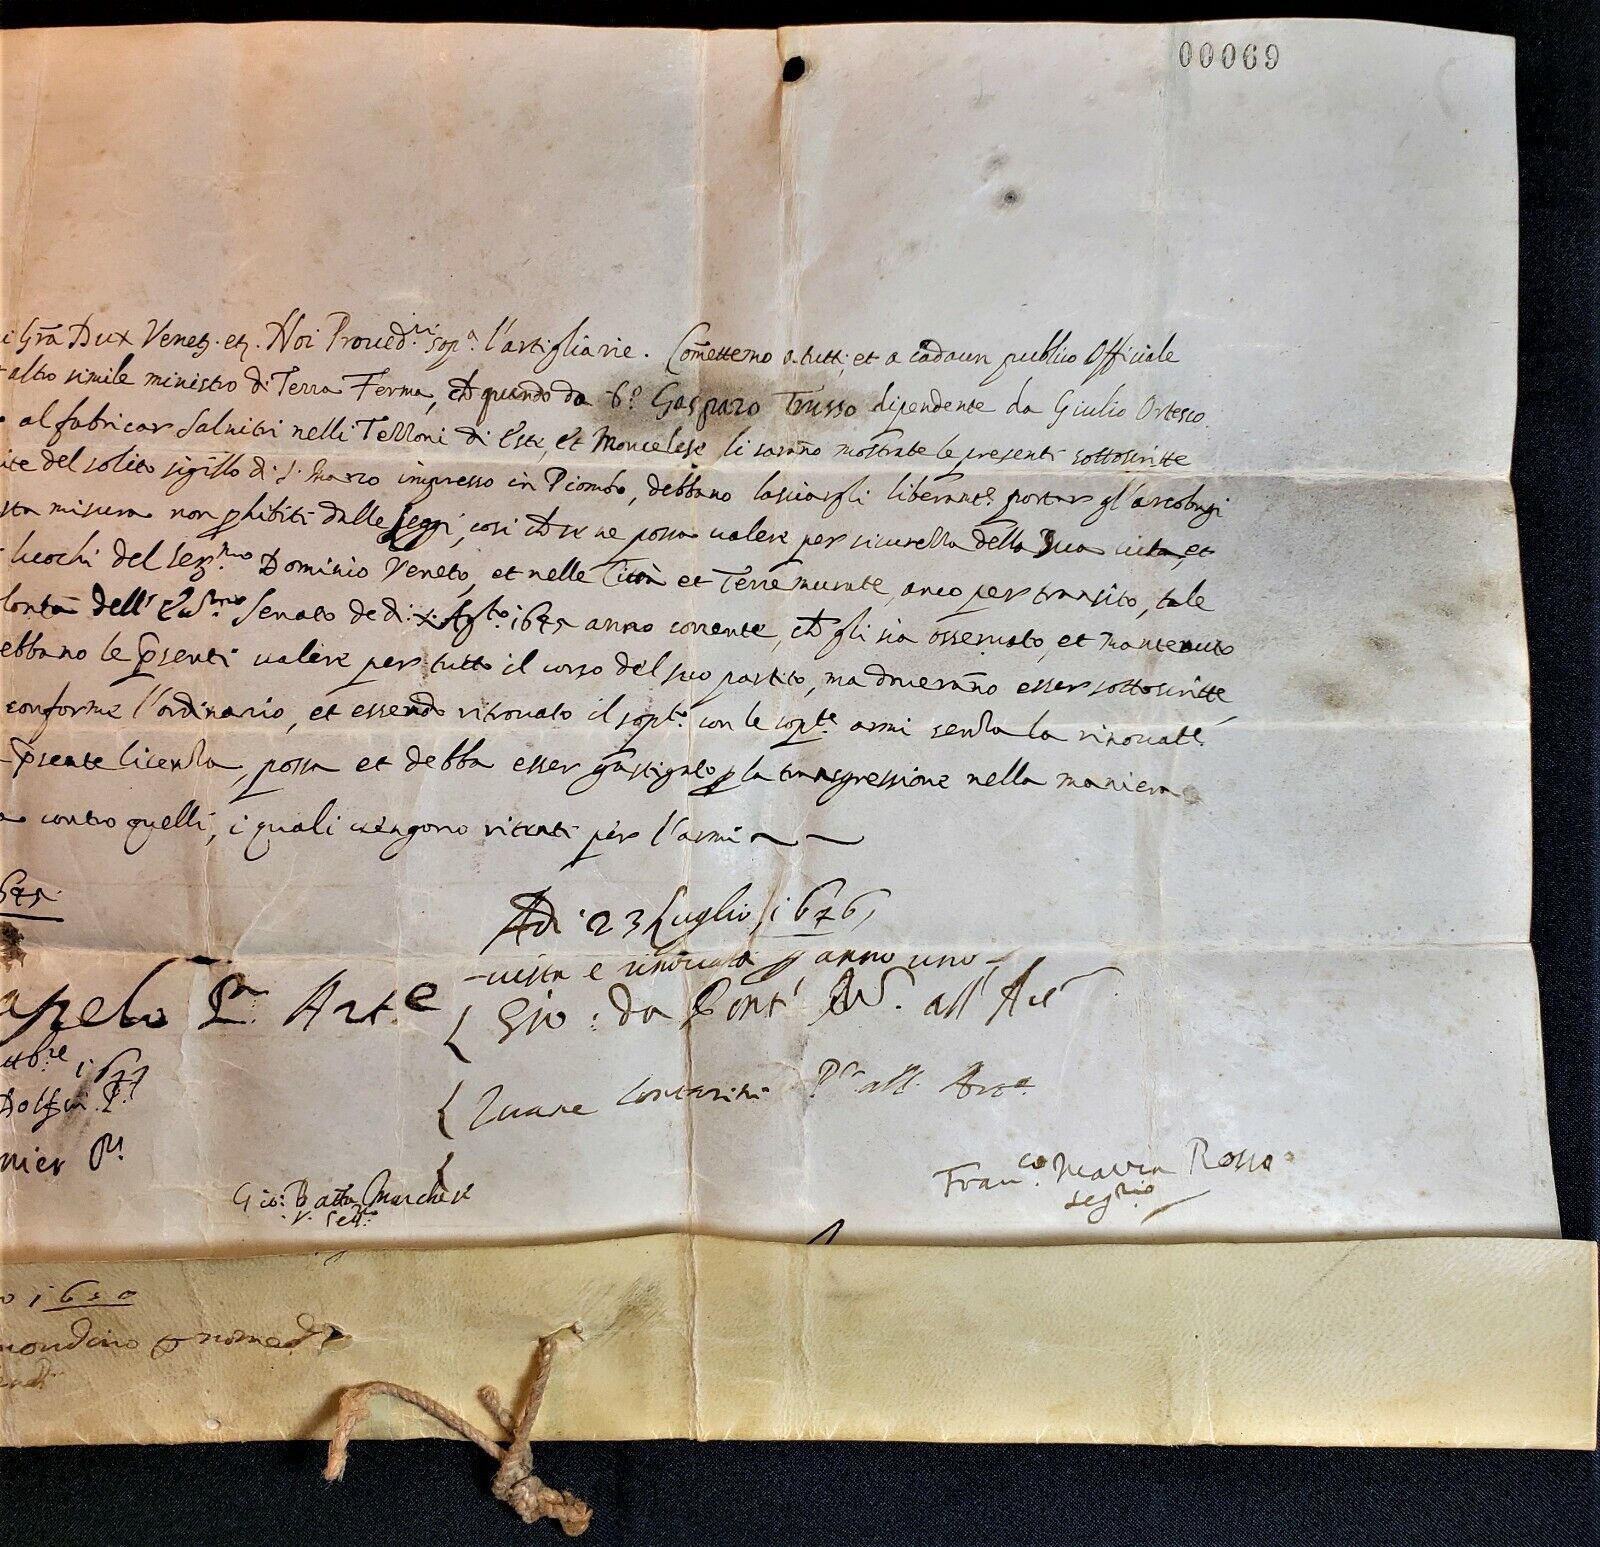 00069
i Grã Dux Venetz. etz. Noi Proued.ri sop.a l'artigliarie. Comettemo a tutti, et a cadaun publico Officiale
altro simile ministro di Terra Ferma, che quando da Gasparo Trusso dipendente da Giulio Ortesco
al fabricar Salnitri nelli Tezzoni di Este, et Moncelese li sarãno mostrate le presenti sottoscritte
ite del solito sigillo di S. Marco impresso in Piombo, debbano lasciargli liberam.te portar gl'arcobugi
sta misura non phibiti dalle leggi, cosi che se ne possa ualere per sicurezza della sua uita, et
luochi del Ser.mo Dominio Veneto, et nelle Città et Terre murate, anco per transito, tale
lontà dell' Senato de di x Ag.to 1675 anno corrente, che gli sia osseruato, et mantenuto
ebbano le psenti ualere per tutto il corso del suo partito, ma doueranno esser sottoscritte
conforme l'ordinario, et essendo ritrouato il sop.to con le sop.te armi senza la rinouat.e
psente licenza, possa et debba esser gastigato p la transgressione nella maniera
contro quelli, i quali uengono ritenti per l'armi
675.
Adi 23 Luglio 1676
uista e rinouata p anno uno
apelo P.r Art.e
Gio: da Pont' all' Art
ttb.re 1677
Dolfin P.r
Zuane Contarini P.r all. Art.e
nier P.r
Fran.co Maria Rosso
seg.rio
Gio: Batta Marchesi
seg.rio
o 1680
mondino p nome di